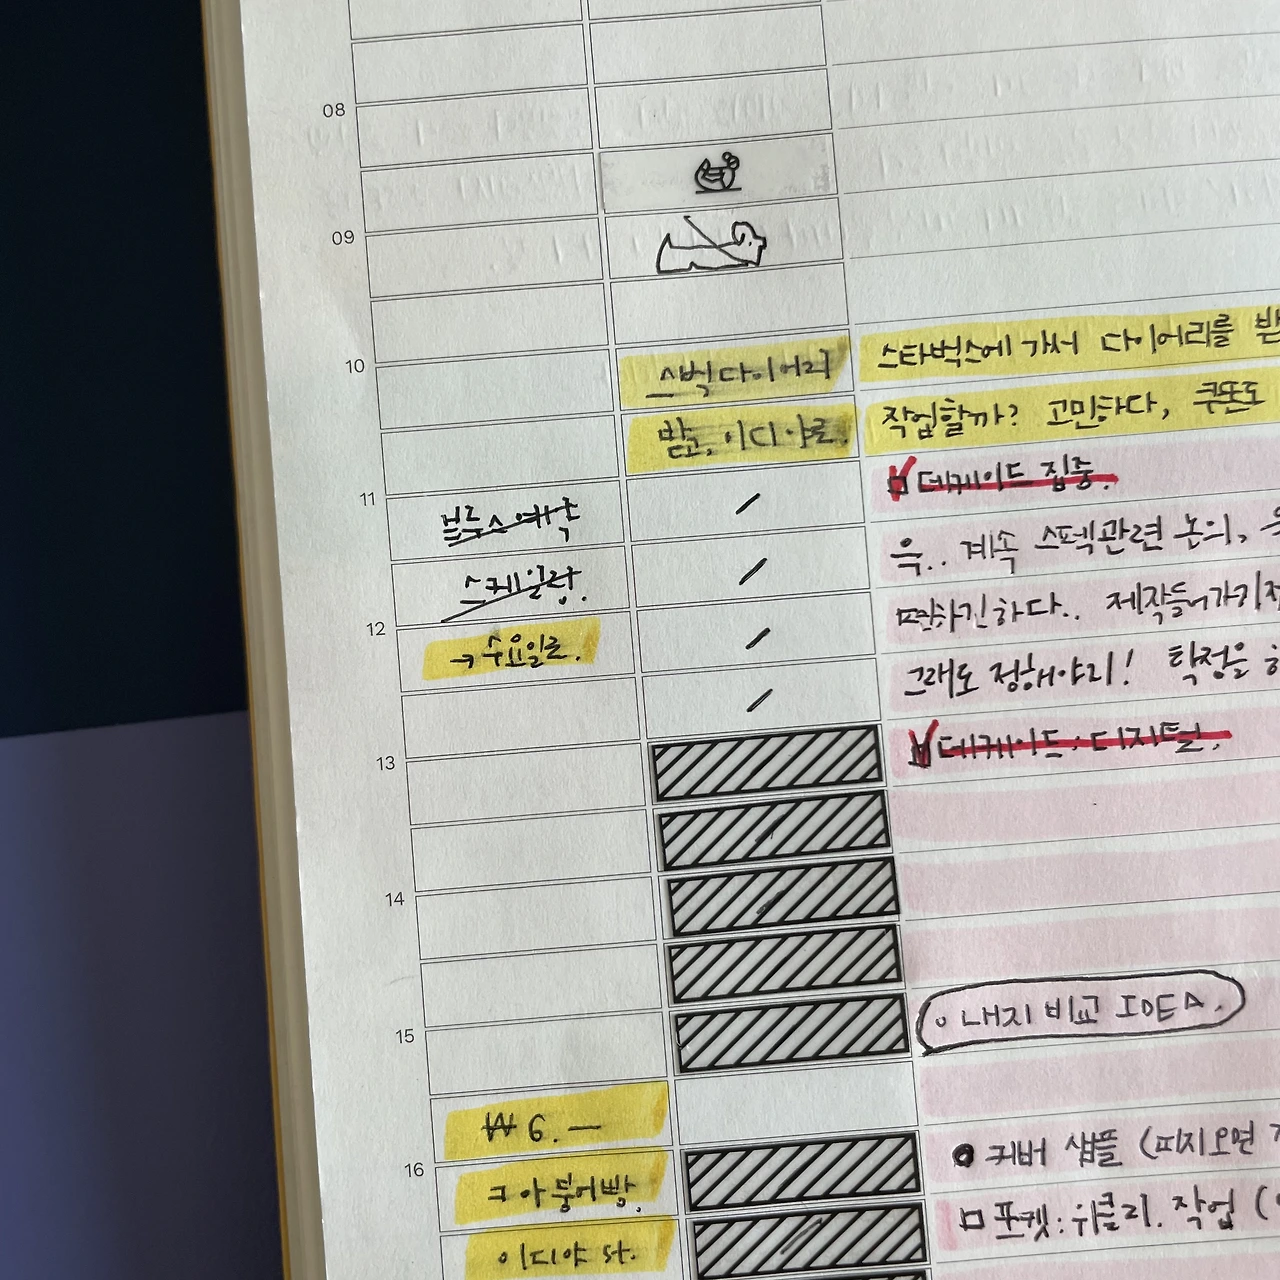 08
09
10
스벅다이어리
스타벅스에 가서 다이어리를 받
받고, 이디야로.
작업할까? 고민하다, 쿠폰도
데케이드 집중.
11
스예약
윽.. 계속 스펙관련 논의,
스케일링.
편하긴하다.. 제작들어가기전
12
→ 수요일로.
그래도 정해야리! 확정을
데케이드: 디지털.
13
14
15
내지 비교 IDEA.
₩ 6. —
커버 샘플 (피지오면
16
ㅋ아붕어빵.
포켓: 위클리. 작업 (
이디야 st.